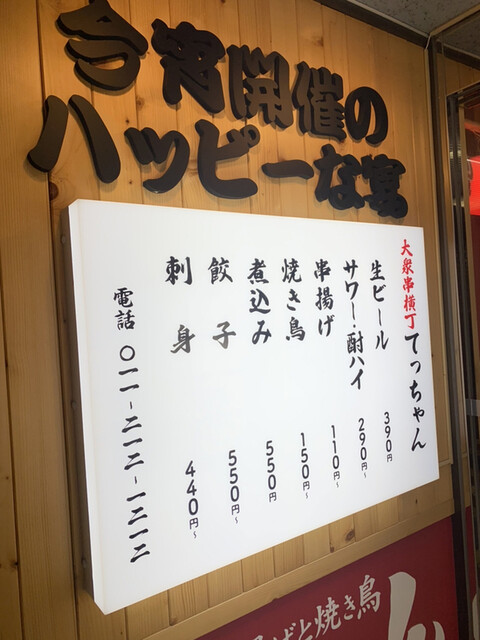 今宵開催の
ハッピーな宴
大衆串横丁てっちゃん
生ビール 390円
サワー・酎ハイ 290円~
串揚げ 110円~
焼き鳥 150円~
煮込み 550円
餃子 550円~
刺身 440円~
電話 〇一一-二一二-一二一二
と焼き鳥